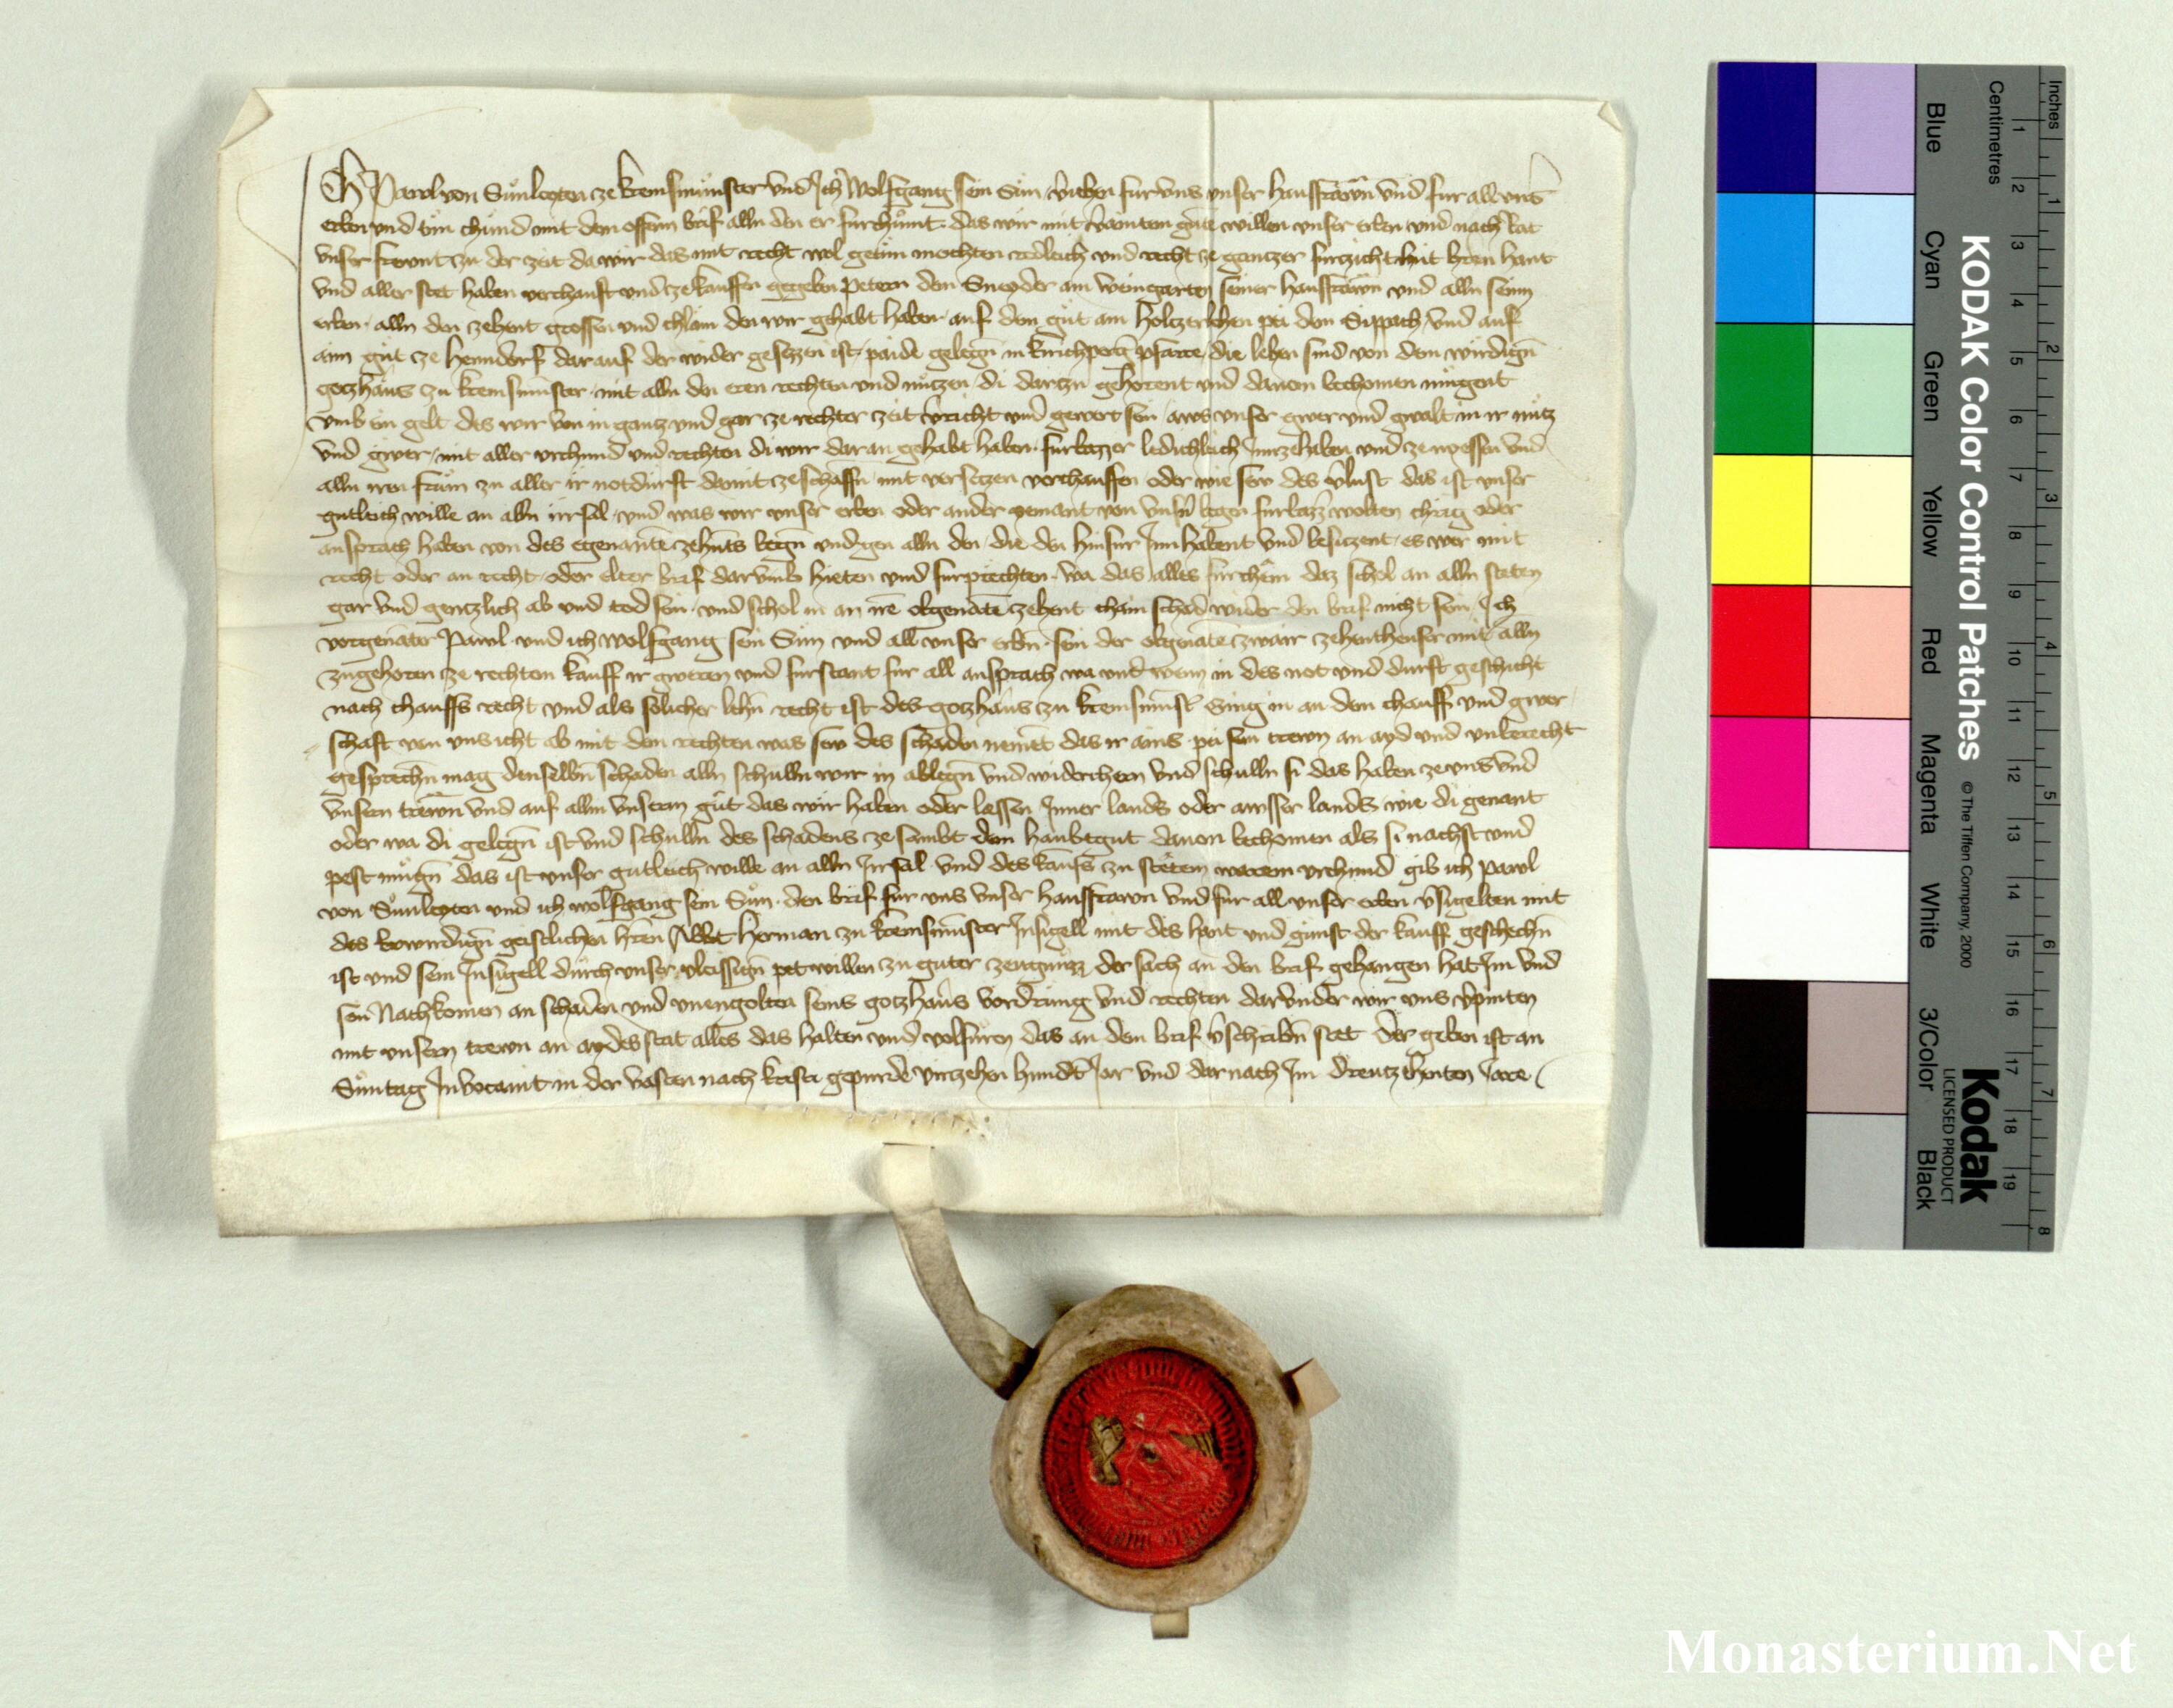 Ich Pawl von Sunleyten ze kremsmunster und Ich Wolfgang sein Sun v̂iehen fur uns unser hausfrawn und fur all uns̄
erben und tun chund mit dem offem brif alln den er furchumt das wir mit v̂ainten gute willen unser erben und nach rat
unser frewnt zu der zeit da wir das mit recht wol getun mochten redleich und recht ze gantzer furzicht mit hren hant
und aller stet haben verchauft und ze kauffen gegeben Petern dem Sneyder am Weingarten seiner hausfrawn und alln seinn
erben alln den zehent grossen und chlain den wir gehabt haben auf dem gut am holtzerlehen pei dem Sippach und auf
aim gut ze henndorf darauf der wider gesezzen ist paide gelegn̄ in kirichperg pfarre die lehen sind von dem wirdign̄
gotzhaus zu kremsmunster mit alln den eren rechten und nutzen di dartzu gehorent und davon bechomen mugent
umb ein gelt des wir von in gantz und gar ze rechter zeit v̂richt und gewert sein aws unser gwer und gwalt in ir nutz
und gwer mit aller urchund und rechten di wir daran gehabt haben furbazzer ledichleich Inn ze haben und ze niessen und
alln iren frum zu aller ir notdurft damit ze schaffn̄ mit versetzen verchauffen oder wie sew des v̂lust das ist unser
gutleich wille an alln irrsal und was wir unser erben oder ander yemant von unsn̄ wegn furbazz wolten chrig oder
ansprach haben von des egenante zehnts wegn̄ und gen alln den die den hinfur Inn habent und besiczent es wer mit
recht oder an recht oder elter brif darumb hieten und furprechten wa das alles furchem daz schol an alln steten
gar und gentzlich ab und tod sein und schol in an irē obgenātē zehent chain schad wider den brif nicht sein Ich
vorgenāter Pawl und ich Wolfgang sein Sun und all unser erbn̄ sein der obgenātē zwair zehentheuser mit alln
zugehoren ze rechtem kauff ir gweren und furstant fur all ansprach wa und wenn in des not und durft geschicht
nach chauffs recht und als solicher lehn̄ recht ist des gotzhaus zu kremsmūst̄ Ging in an dem chauff und gwer
schaft von uns icht ab mit dem rechten was sew des schaden nemēt das ir ains pei sein trewn an ayd und unberecht
gesprechn̄ mag denselbn̄ schaden alln schulln wir in ablegn̄ und widerchern und schulln si das haben ze uns und
unsern trewn und auf allm unserm gut das wir haben oder lassen Inner lands oder ausser lands wie di genant
oder wa di gelegn̄ ist und schulln des schadens ze sambt dem haubtgut davon bechomen als si nachst und
pest mugn̄ das ist unser gutleich wille an alln Irrsal und des kaufs zu stetem warem urchund gib ich Pawl
von Sunleyten und ich Wolfgang sein Sun den brif fur uns unser hausfrawn und fur all unser erben v̂sigelten mit
des erwirdign̄ geistlichen hren Abbt Herman zu kremsmūster Insigell mit des hant und gunst der kauff geschechn̄
ist und sein Insigell durch unser vleissign̄ pet willen zu guter zeugnuzz der sach an den brif gehangen hat Im und
sein Nachkomen an schaden und unengolten seins gotzhaus vordrung und rechten darunder wir uns v̂pinten
mit unsern trewn an aydes stat alles das halten und volfuren das an dem brif v̂schribn̄ stet Der geben ist an
Suntag Invocavit in der vasten nach kristi gepurde virzehen hundt̄ Jar und darnach Im dreutzehenten Jare
KODAK Color Control Patches © The Tiffen Company, 2000 Kodak LICENSED PRODUCT
Inches 1 2 3 4 5 6 7 8
Centimetres 1 2 3 4 5 6 7 8 9 10 11 12 13 14 15 16 17 18 19
Blue Cyan Green Yellow Red Magenta White 3/Color Black
Monasterium.Net